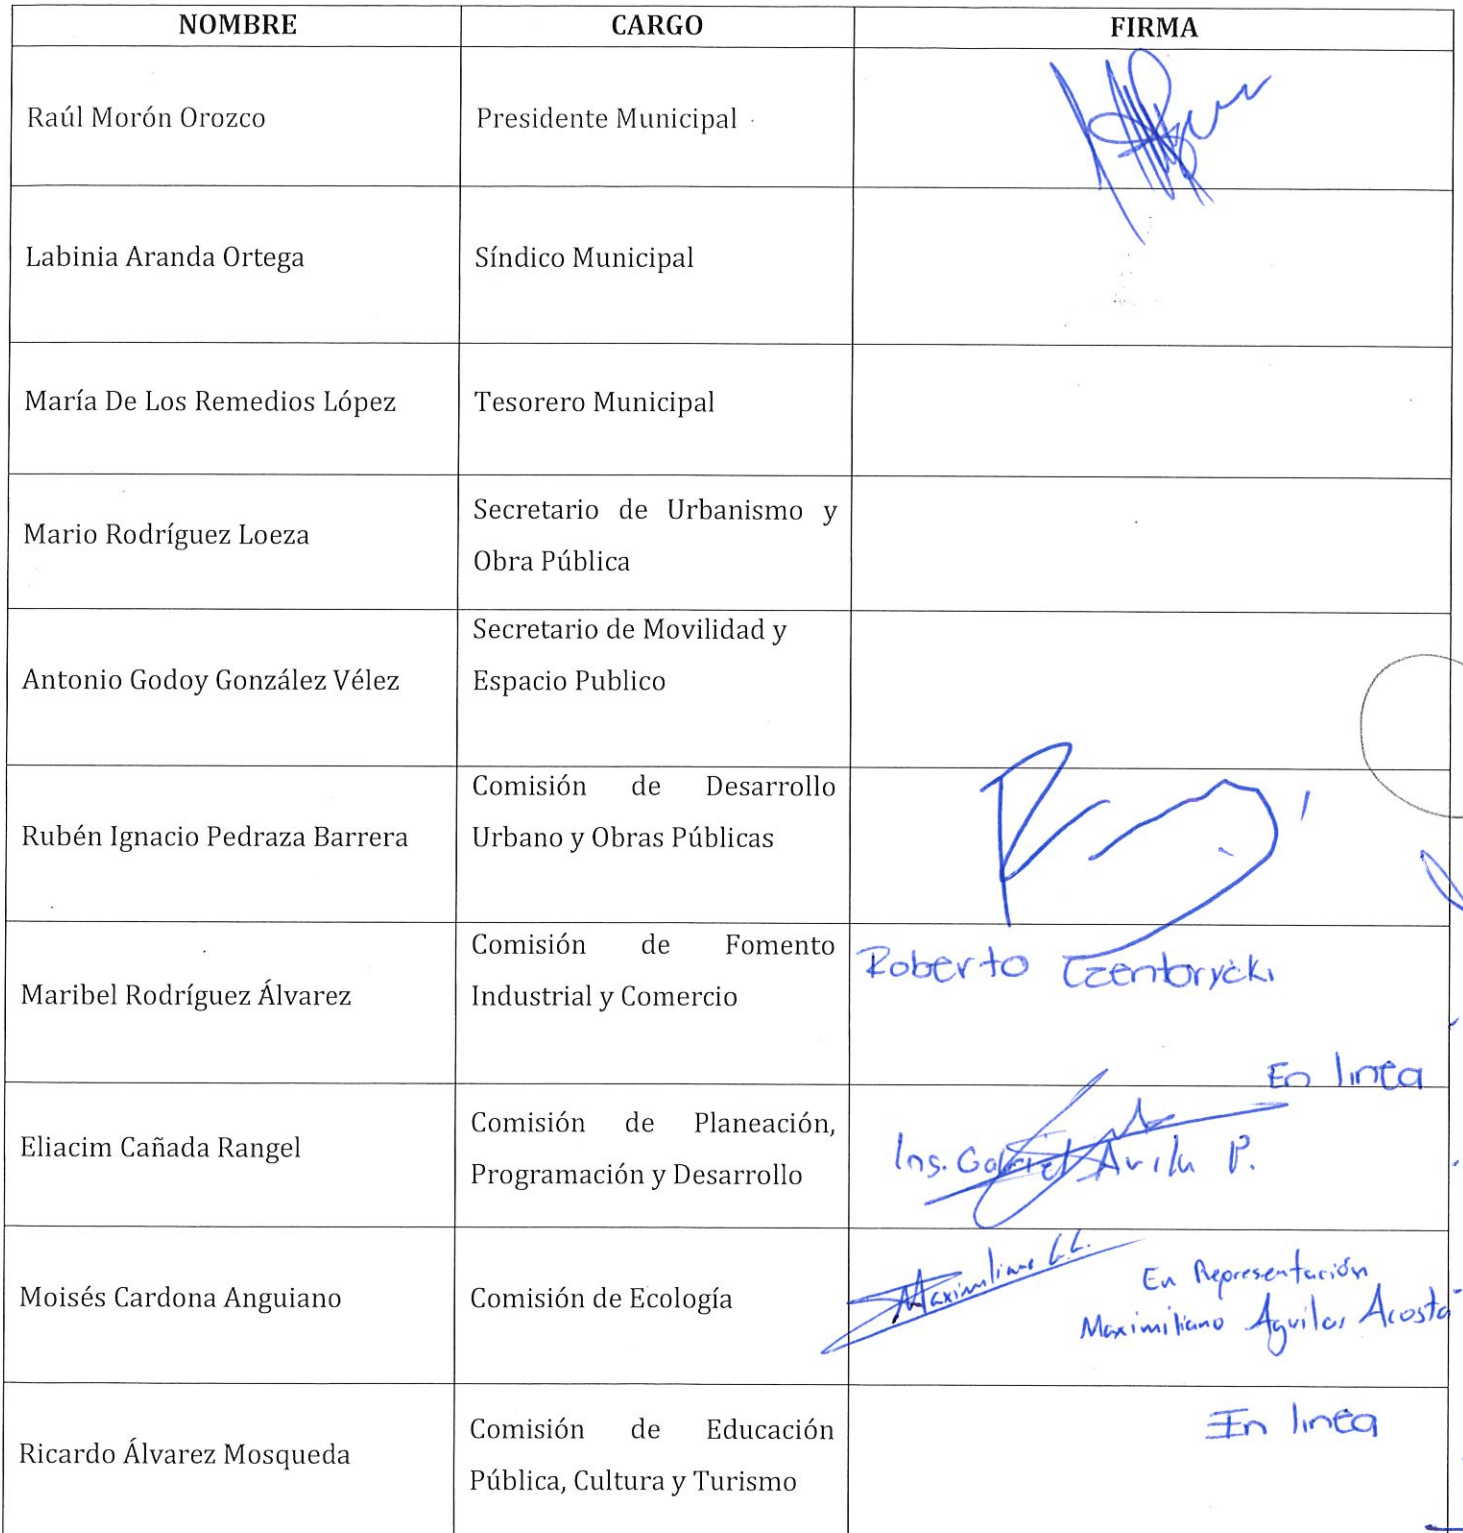 NOMBRE CARGO FIRMA
Raúl Morón Orozco Presidente Municipal
Labinia Aranda Ortega Síndico Municipal
María De Los Remedios López Tesorero Municipal
Mario Rodríguez Loeza
Secretario de Urbanismo y
Obra Pública
Antonio Godoy González Vélez
Secretario de Movilidad y
Espacio Publico
Rubén Ignacio Pedraza Barrera
Comisión de Desarrollo
Urbano y Obras Públicas
Maribel Rodríguez Álvarez
Comisión de Fomento
Industrial y Comercio
Roberto
En linea
Eliacim Cañada Rangel
Comisión de Planeación,
Programación y Desarrollo
Ing. Gabriel Avila P.
Moisés Cardona Anguiano Comisión de Ecología
En Representación
Maximiliano Aguilar Acosta
Ricardo Álvarez Mosqueda
Comisión de Educación
Pública, Cultura y Turismo
En linea